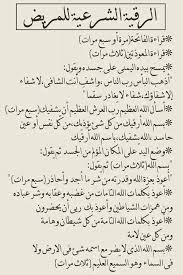 الرقية الشرعية للمريض
*قراءة الفاتحة (مرة أو سبع مرات)
*قراءة المعوذتين (ثلاث مرات)
*يمسح بيده اليمنى على جسده ويقول:
"أذهب الباس رب الناس، واشف أنت الشافي، لا شفاء
إلا شفاؤك شفاء لا يغادر سقما"
*أسأل الله العظيم رب العرش العظيم أن يشفيك (سبع مرات)
*بسم الله أرقيك من كل شيء يؤذيك، من كل نفس أو عين
حاسد الله يشفيك، بسم الله أرقيك
*وضع اليد على المكان المؤلم من الجسد ثم يقول:
"بسم الله" (ثلاث مرات) ويقول:
"أعوذ بعزة الله وقدرته من شر ما أجد وأحاذر" (سبع مرات)
*أعوذ بكلمات الله التامات من غضبه وعقابه وشر عباده
ومن همزات الشياطين وأعوذ بك ربي أن يحضرون
*أعوذ بكلمات الله التامة من كل شيطان وهامة
ومن كل عين لامة
*بسم الله الذي لا يضر مع اسمه شيء في الارض ولا
في السماء وهو السميع العليم (ثلاث مرات)